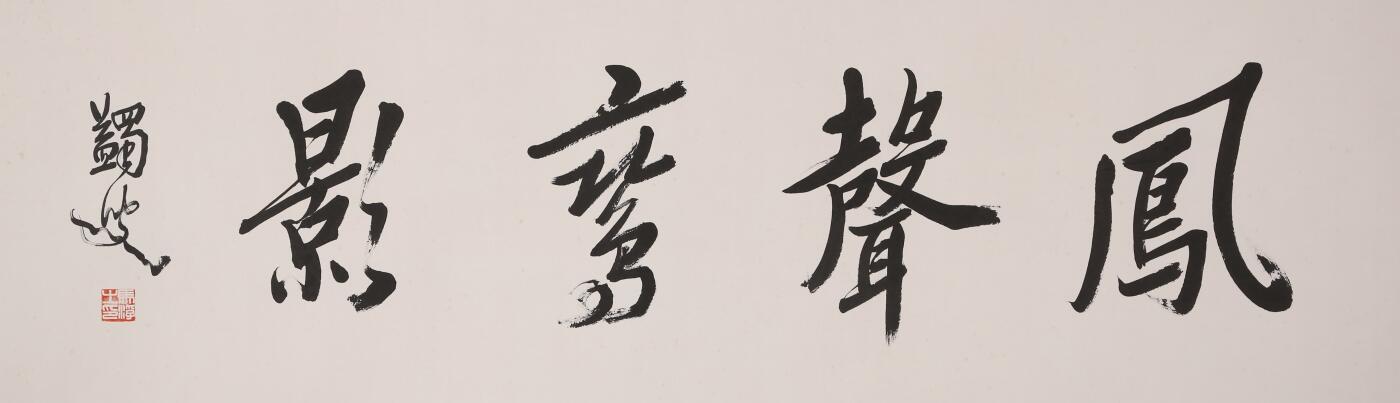 鳳聲鸞影
蠲叟